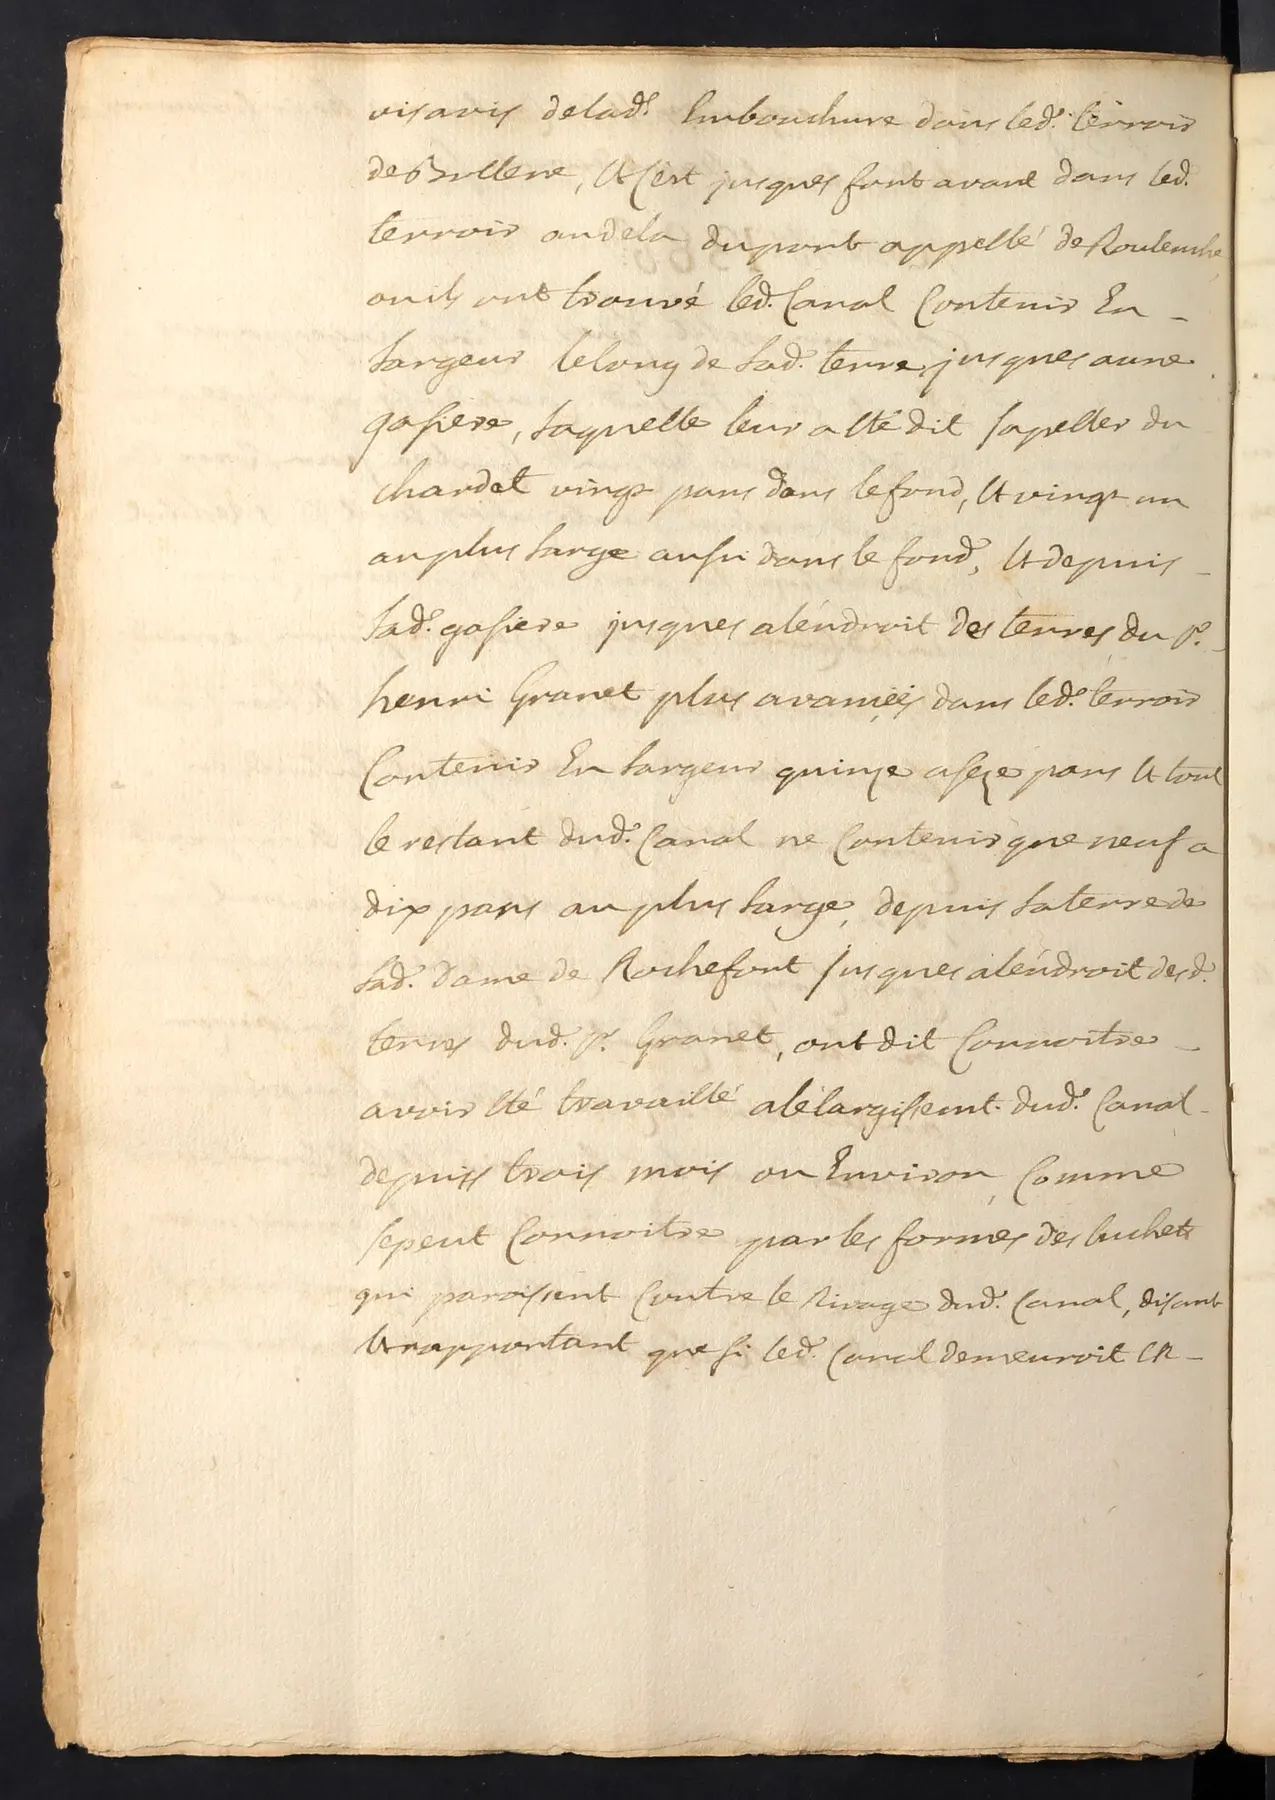 visavis delad.e Embouchure dans led.t terroir
de Bollene, Et c'est jusques fort avant dans led.
terroir audela dupont appellé de Roulenche
ou ils ont trouvé led. Canal Contenir En -
Largeur lelong de Lad. terre, jusques aune
gasiere, Laquelle leur a Eté dit sapeller du
chardet vingt pans dans lefond, Et vingt un
au plus Large aussi dans le fond, Et depuis -
Lad.e gasiere jusques aléndroit des terres du s.r -
henri Granet plus avancées dans led.t terroir
Contenir En Largeur quinze aseze pans Et tout
le restant dud.t Canal ne Contenir que neuf a
dix pans au plus Large, depuis Laterre de
Lad.e Dame de Rochefort Jusques aléndroit desd.
terres dud. s.r Granet, ont dit Connoitre -
avoir Eté travaillé alélargissemt. dud.t Canal -
depuis trois mois ou Environ, Comme
sepeut Connoitre par les formes des luchets
qui paroissent Contre le Rivage dud.t Canal, disant
Et rapportant que si led.t Canal demeuroit En -